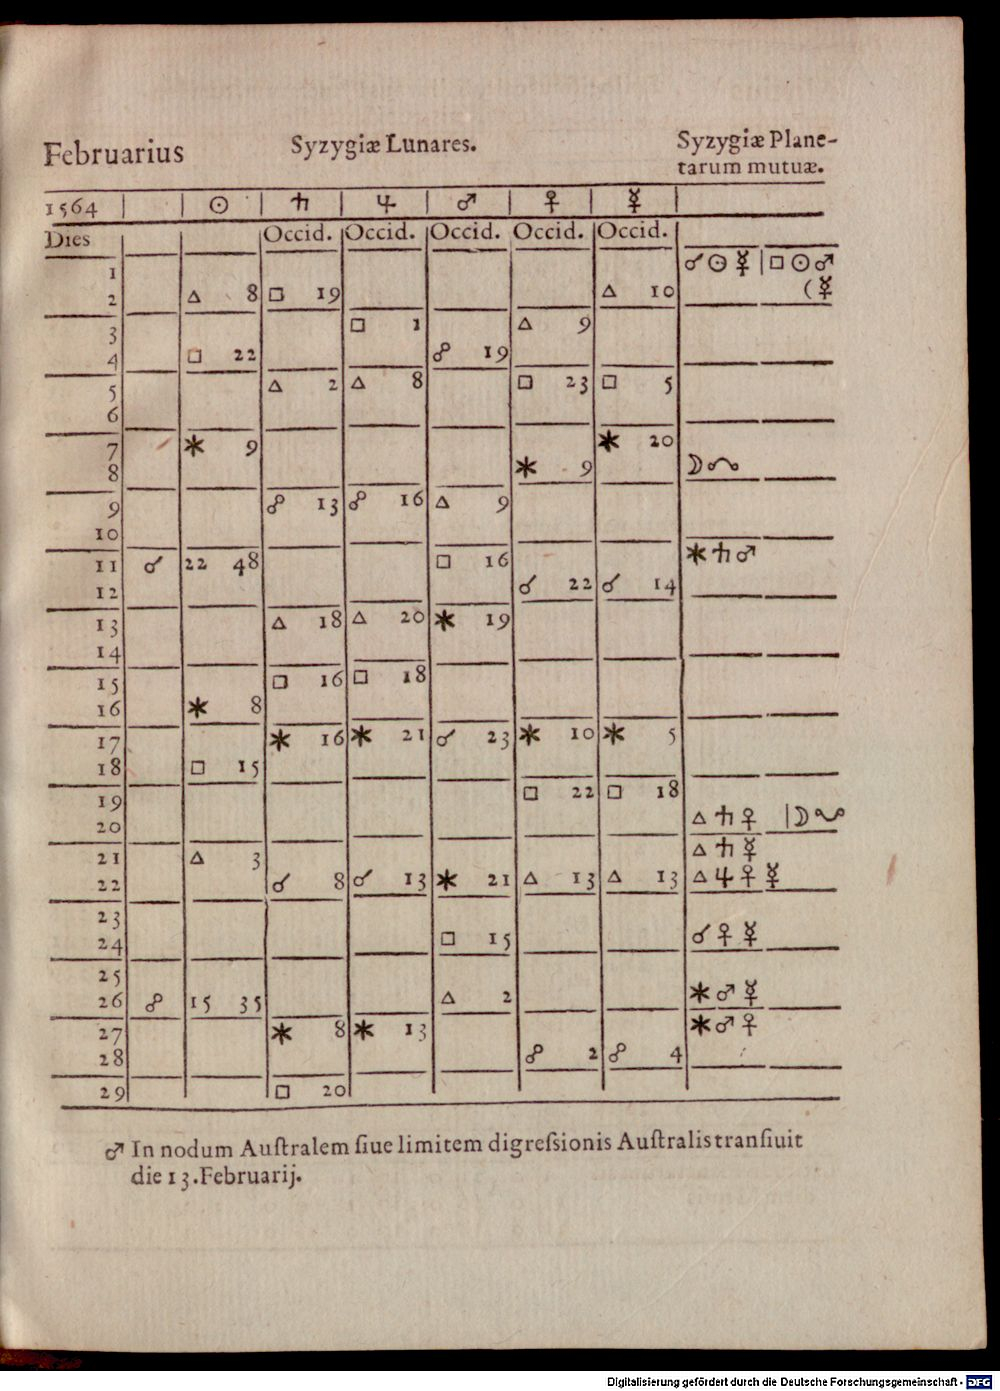 Februarius Syzygiæ Lunares. Syzygiæ Plane-
tarum mutuæ.
1564 | | ☉ | ♄ | ♃ | ♂ | ♀ | ☿ |
Dies Occid. Occid. Occid. Occid. Occid.
1 ☌ ☉ ☿ | □ ☉ ♂
2 △ 8 □ 19 △ 10 (☿
3 □ 1 △ 9
4 □ 22 ☍ 19
5 △ 2 △ 8 □ 23 □ 5
6
7 ⚹ 9 ⚹ 20
8 ⚹ 9 ☽ ☊
9 ☍ 13 ☍ 16 △ 9
10
11 ☌ 22 48 □ 16 ⚹ ♄ ♂
12 ☌ 22 ☌ 14
13 △ 18 △ 20 ⚹ 19
14
15 □ 16 □ 18
16 ⚹ 8
17 ⚹ 16 ⚹ 21 ☌ 23 ⚹ 10 ⚹ 5
18 □ 15
19 □ 22 □ 18
20 △ ♄ ♀ | ☽ ☋
21 △ 3 △ ♄ ☿
22 ☌ 8 ☌ 13 ⚹ 21 △ 13 △ 13 △ ♃ ♀ ☿
23
24 □ 15 ☌ ♀ ☿
25
26 ☍ 15 35 △ 2 ⚹ ♂ ☿
27 ⚹ 8 ⚹ 13 ⚹ ♂ ♀
28 ☍ 2 ☍ 4
29 □ 20
♂ In nodum Auſtralem ſiue limitem digreſsionis Auſtralis tranſiuit
die 13. Februarij.
Digitalisierung gefördert durch die Deutsche Forschungsgemeinschaft - DFG